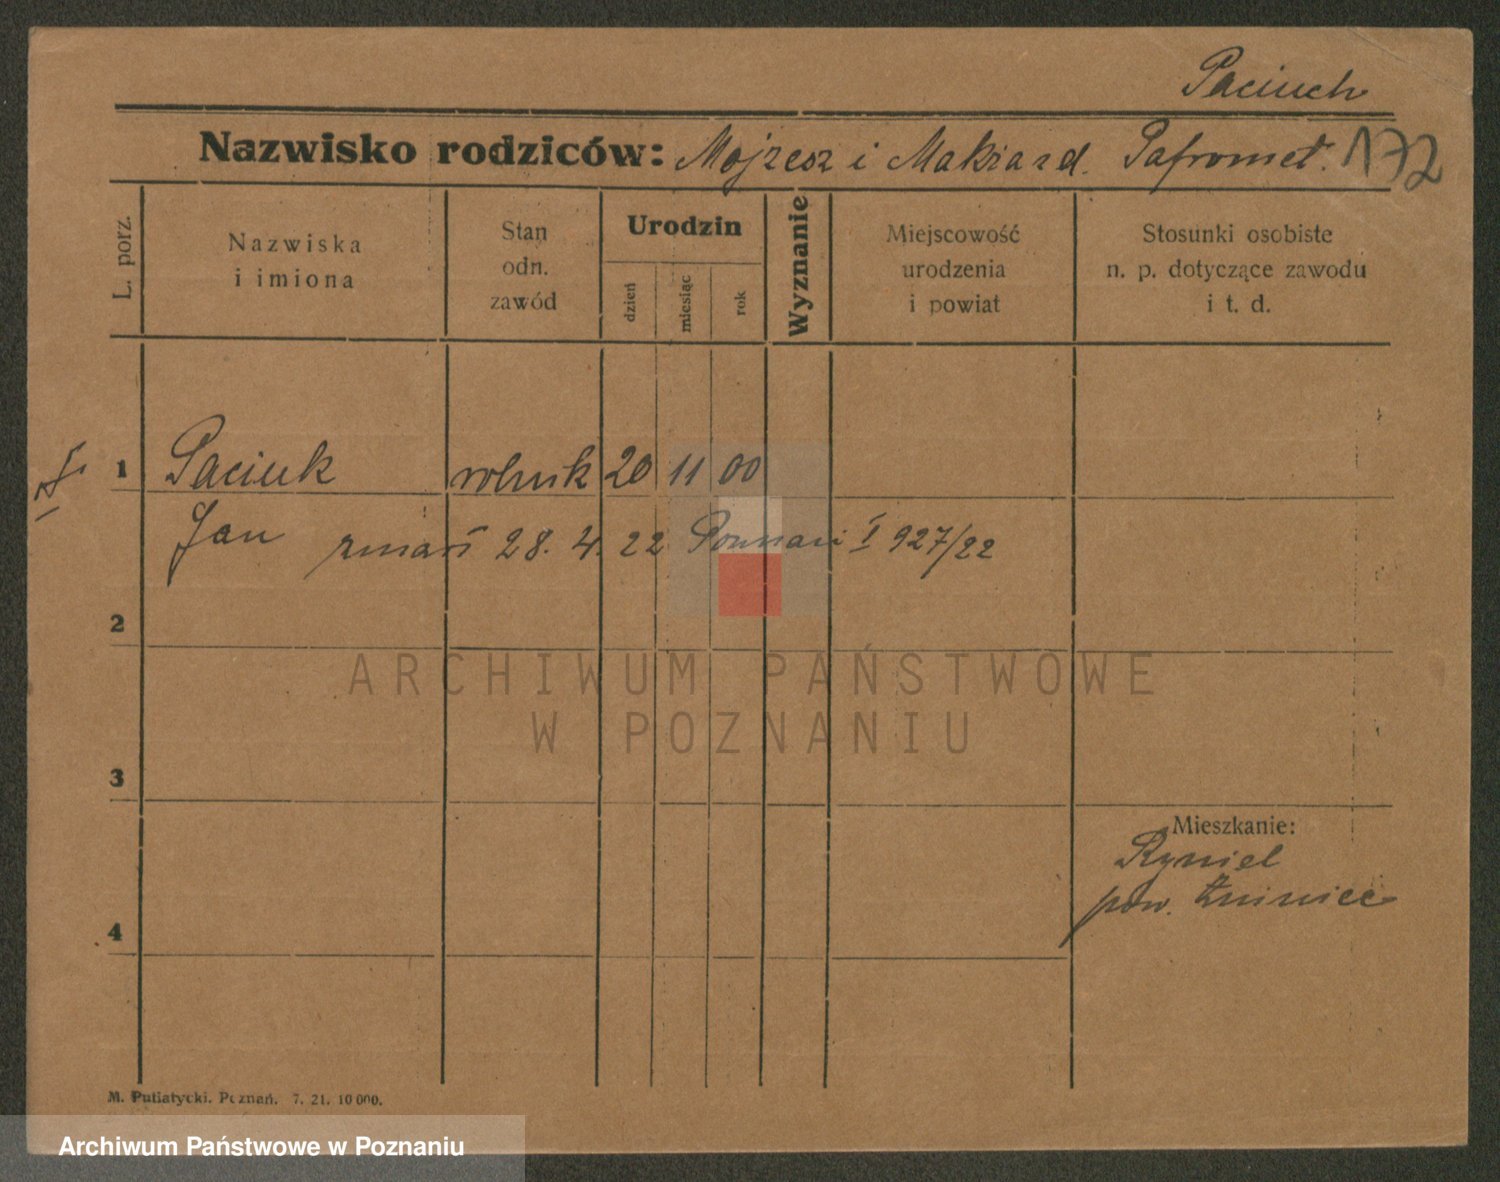 Paciuch
Nazwisko rodziców: Mojzesz i Makra z d. Pafromet. 172
L. porz.
Nazwiska i imiona
Stan odn. zawód
Urodzin
dzień
miesiąc
rok
Wyznanie
Miejscowość urodzenia i powiat
Stosunki osobiste n. p. dotyczące zawodu i t. d.
1 Paciuk rolnik 20 11 00
Jan zmarł 28. 4. 22 Poznań I 927/22
2
3
Mieszkanie:
pow.
4
M. Putiatycki. Poznań. 7. 21. 10 000.
ARCHIWUM PAŃSTWOWE
W POZNANIU
Archiwum Państwowe w Poznaniu